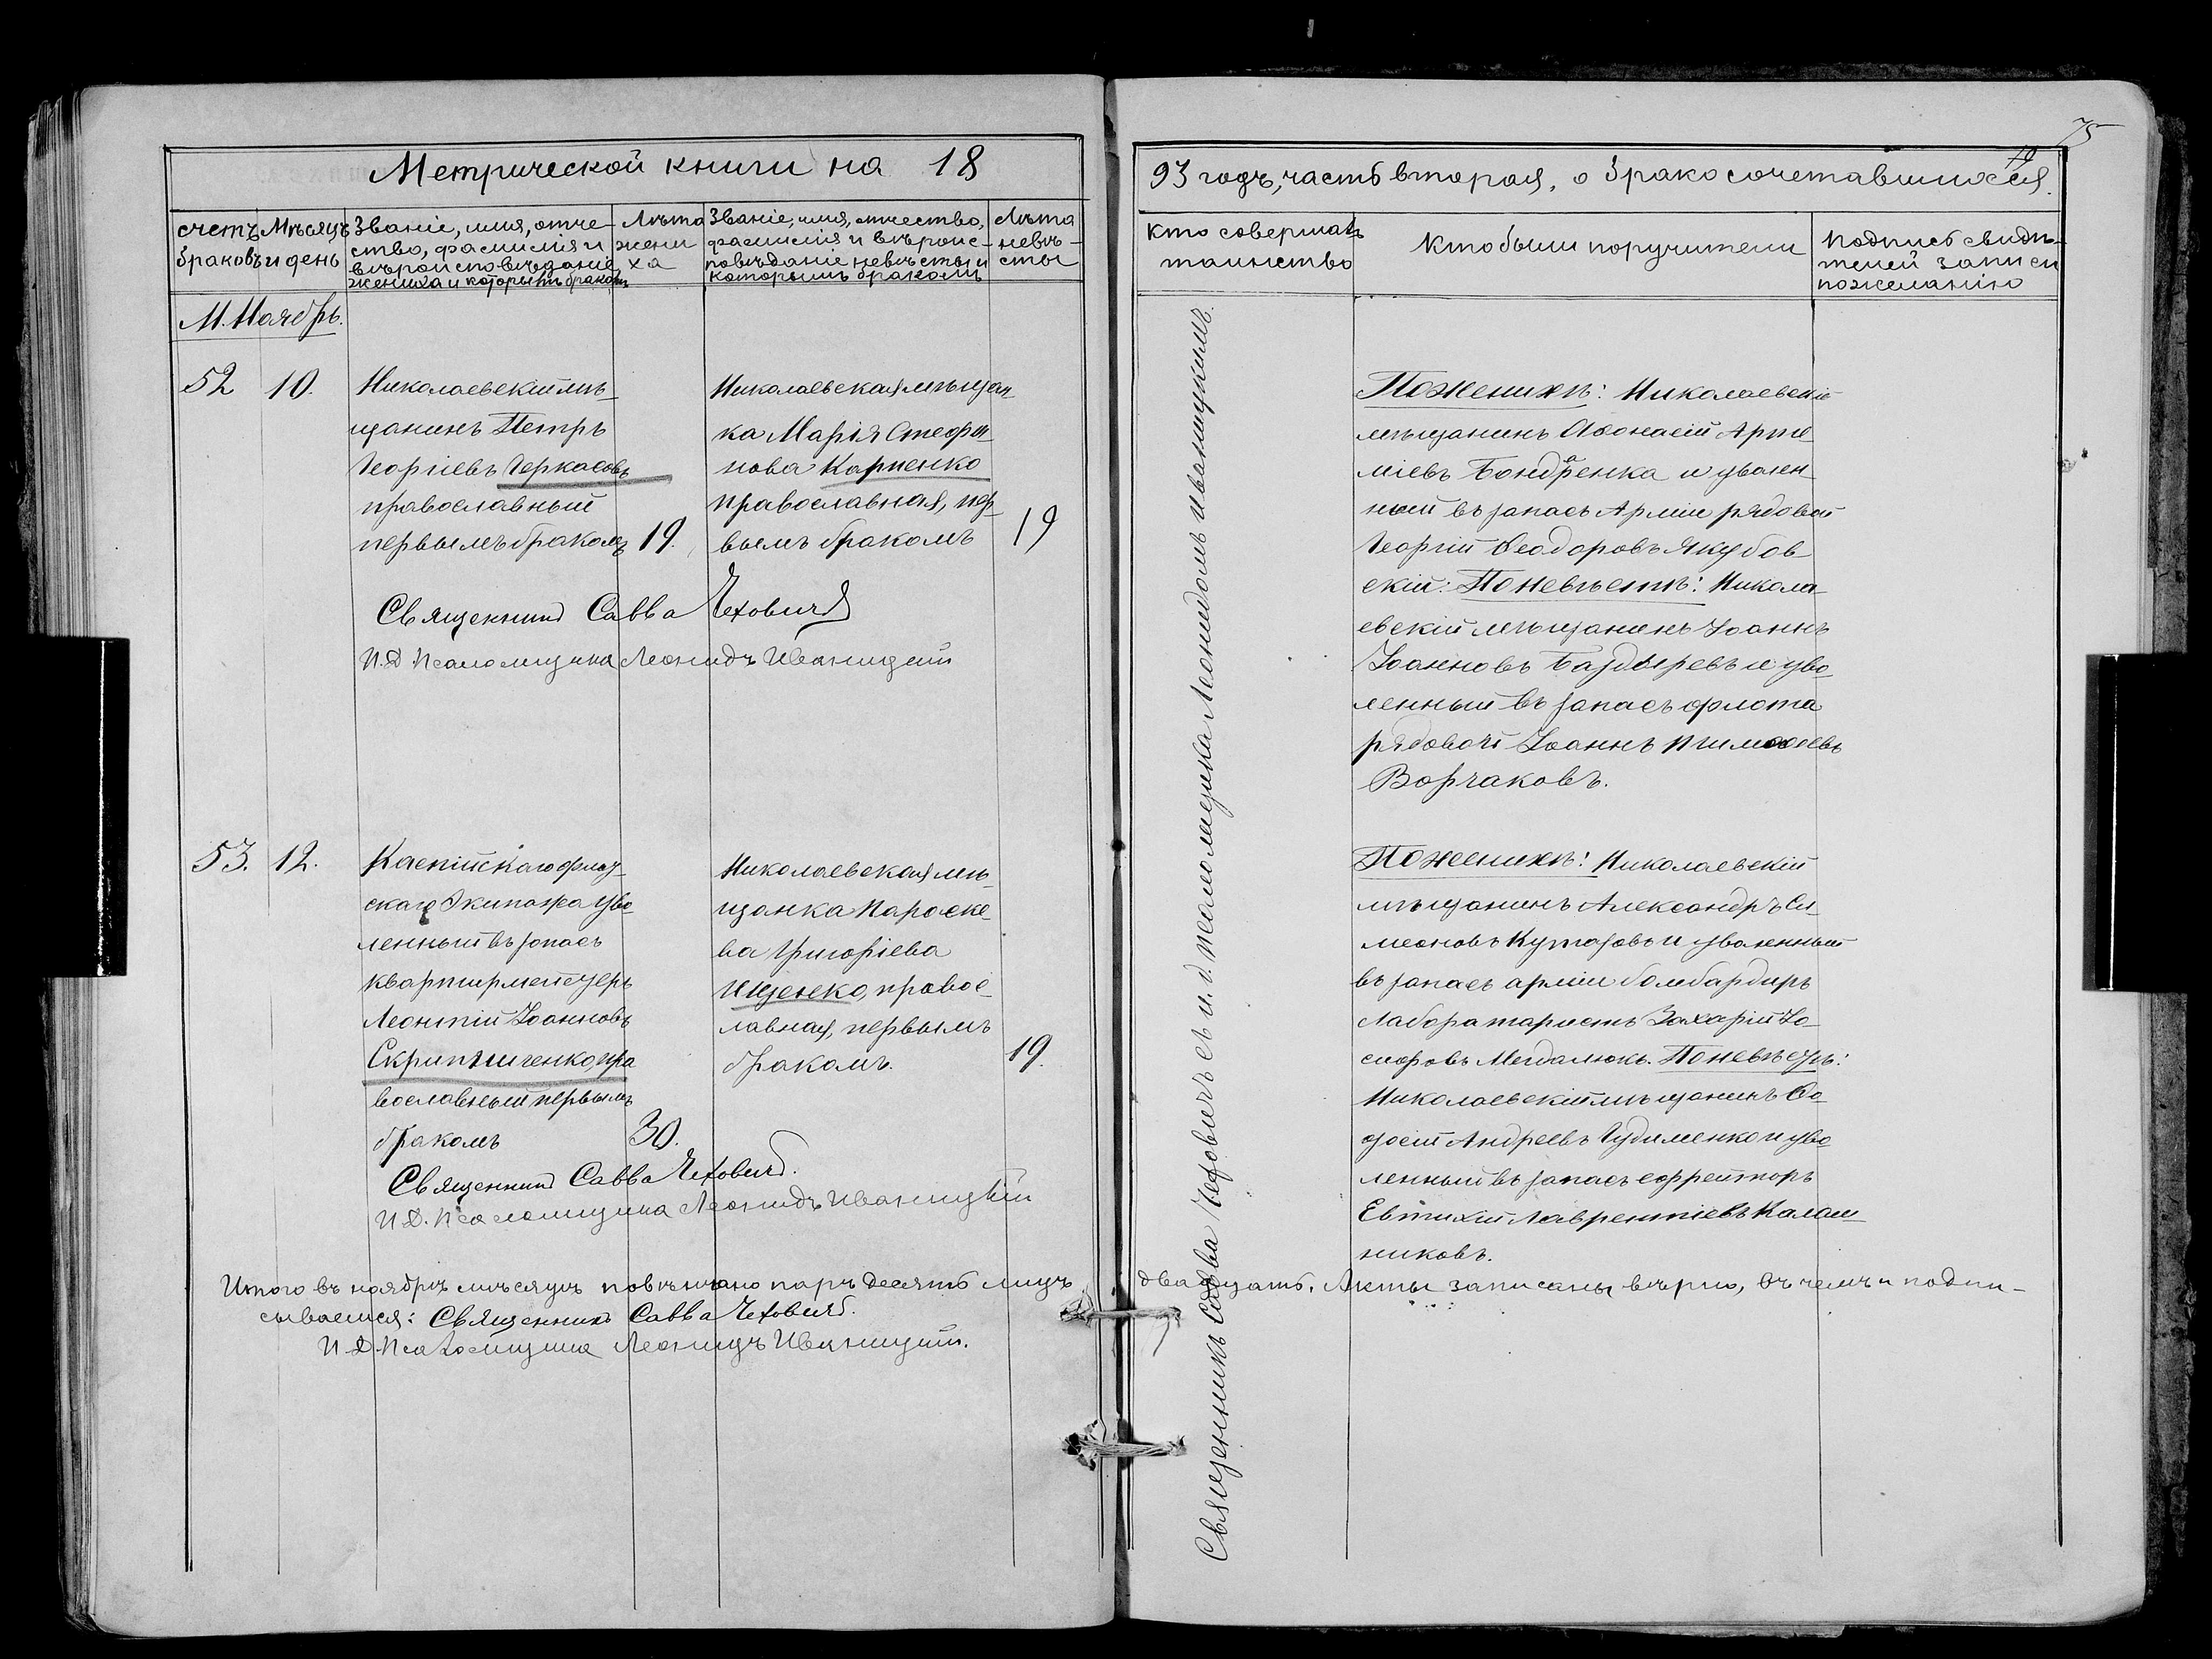 75
Метрической книги на 18
93 годъ, часть вторая, о бракосочетавшихся.
счетъ браковъ
Мѣсяцъ и день
Званіе, имя, отче-
ство, фамилія и
вѣроисповѣданіе
жениха и которымъ бракомъ
Лѣта
жени
ха
Званіе, имя, отчество,
фамилія и вѣроис-
повѣданіе невѣсты и
которымъ бракомъ
Лѣта
невѣ-
сты
Кто совершалъ
таинство
Кто были поручители
Подпись свидѣ-
телей записи
по желанію
М. Ноябрь.
52
10.
Николаевскій мѣ-
щанинъ Петръ
Георгіевъ Черкасовъ
православный
первымъ бракомъ
19.
Николаевская мѣщан-
ка Марія Стефа-
нова Карпенко
православная, пер-
вымъ бракомъ
19
Священникъ Савва Чеховичъ
И.Д. Псаломщика Леонидъ Иваницкій
По женихѣ: Николаевскій
мѣщанинъ Аѳонасій Арте-
міевъ Бондаренка и уволен-
ный въ запасъ Арміи рядовой
Георгій Ѳеодоровъ Якубов-
скій: По невѣстѣ: Никола-
евскій мѣщанинъ Іоаннъ
Іоанновъ Баздыревъ и уво-
ленный въ запасъ флота
рядовой Іоаннъ Тимоѳеевъ
Ворчаковъ.
53.
12.
Каспійскаго флот-
скаго Экипажа уво-
ленный въ запасъ
квартирмейстеръ
Леонтій Іоанновъ
Скрипниченко, пра
вославный первымъ
бракомъ
30.
Николаевская мѣ-
щанка Параске-
ва Григоріева
Ищенко, правос-
лавная, первымъ
бракомъ.
19.
Священникъ Савва Чеховичъ.
И.Д. Псаломщика Леонидъ Иваницкій
По женихѣ: Николаевскій
мѣщанинъ Александръ Си-
меоновъ Кутазовъ и уволенный
въ запасъ арміи бомбардиръ
Лаборатористъ Захарій Іо-
сифовъ Мегдалюкъ. По невѣстѣ:
Николаевскій мѣщанинъ Ѳо-
досій Андреевъ Гудименко и уво
ленный въ запасъ ефрейторъ
Евтихій Лаврентіевъ Калаш-
никовъ.
Священникъ Савва Чеховичъ съ и.д. псаломщика Леонидомъ Иваницкимъ.
Итого въ ноябрѣ мѣсяцѣ повѣнчано паръ десять лицъ двадцать. Акты записаны вѣрно, въ чемъ и подпи-
сываемся: Священникъ Савва Чеховичъ.
И.Д. Псаломщика Леонидъ Иваницкій.